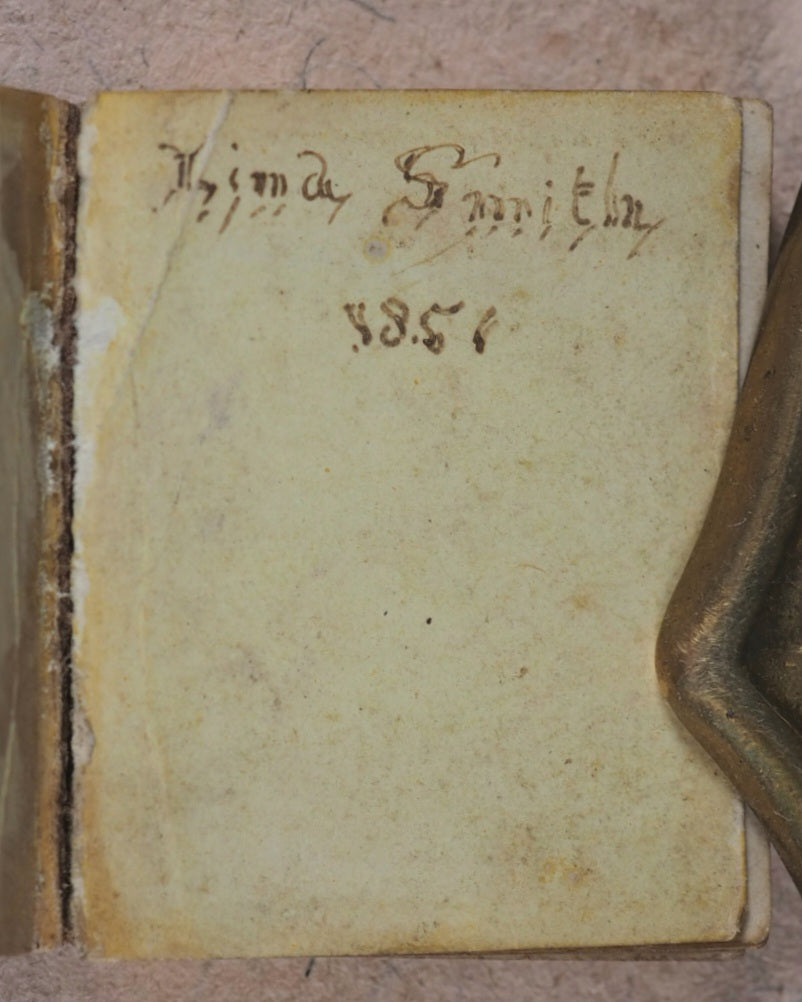 Linda Smith
1851